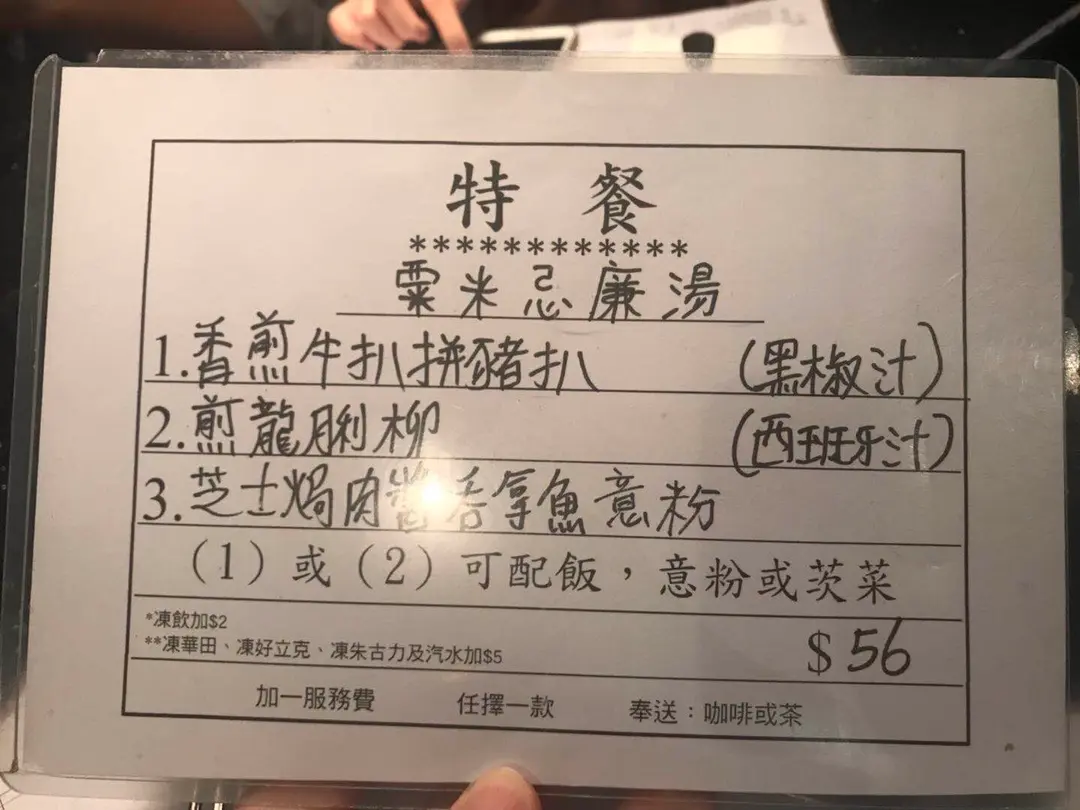 特餐
************
粟米忌廉湯
1.香煎牛扒拼豬扒 (黑椒汁)
2.煎龍脷柳 (西班牙汁)
3.芝士焗肉醬吞拿魚意粉
(1)或(2)可配飯，意粉或茨菜
*凍飲加$2
**凍華田、凍好立克、凍朱古力及汽水加$5
$56
加一服務費 任擇一款 奉送：咖啡或茶